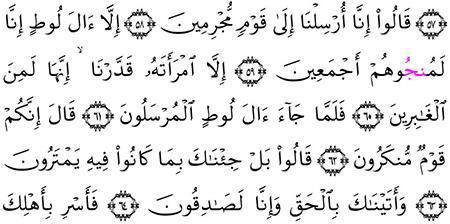 ﴿٥٧﴾ قَالُوٓا۟ إِنَّآ أُرْسِلْنَآ إِلَىٰ قَوْمٍ مُّجْرِمِينَ ﴿٥٨﴾ إِلَّآ ءَالَ لُوطٍ إِنَّا
لَمُنَجُّوهُمْ أَجْمَعِينَ ﴿٥٩﴾ إِلَّا ٱمْرَأَتَهُۥ قَدَّرْنَآ ۙ إِنَّهَا لَمِنَ
ٱلْغَـٰبِرِينَ ﴿٦٠﴾ فَلَمَّا جَآءَ ءَالَ لُوطٍ ٱلْمُرْسَلُونَ ﴿٦١﴾ قَالَ إِنَّكُمْ
قَوْمٌ مُّنكَرُونَ ﴿٦٢﴾ قَالُوا۟ بَلْ جِئْنَـٰكَ بِمَا كَانُوا۟ فِيهِ يَمْتَرُونَ
﴿٦٣﴾ وَأَتَيْنَـٰكَ بِٱلْحَقِّ وَإِنَّا لَصَـٰدِقُونَ ﴿٦٤﴾ فَأَسْرِ بِأَهْلِكَ